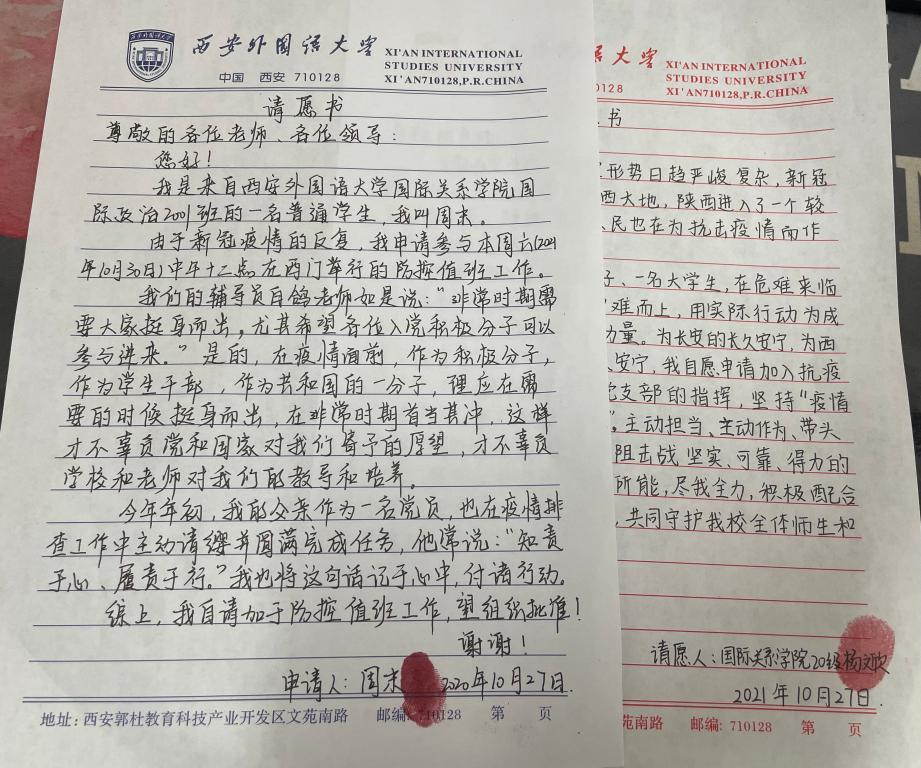 西安外国语大学
XI'AN INTERNATIONAL
STUDIES UNIVERSITY
XI'AN710128,P.R.CHINA
中国 西安 710128
请愿书
尊敬的各位老师、各位领导：
您好！
我是来自西安外国语大学国际关系学院国
际政治2001班的一名普通学生，我叫周末。
由于新冠疫情的反复，我申请参与本周六(2021
年10月30日)中午十二点在西门举行的防控值班工作。
我们的辅导员白鸽老师如是说：“非常时期需
要大家挺身而出。尤其希望各位入党积极分子可以
参与进来。”是的，在疫情面前，作为积极分子，
作为学生干部，作为共和国的一分子，理应在需
要的时候挺身而出，在非常时期首当其冲，这样
才不辜负党和国家对我们寄予的厚望，才不辜负
学校和老师对我们的教导和培养。
今年年初，我的父亲作为一名党员，也在疫情排
查工作中主动请缨并圆满完成任务，他常说：“知责
于心、履责于行。”我也将这句话记于心中，付诸行动。
综上，我自请加于防控值班工作，望组织批准！
谢谢！
申请人：周末 2020年10月27日.
地址：西安郭杜教育科技产业开发区文苑南路 邮编：710128 第 页
大学
XI'AN INTERNATIONAL
STUDIES UNIVERSITY
XI'AN710128,P.R.CHINA
0128
书
形势日趋严峻复杂，新冠
西大地，陕西进入了一个较
民也在为抗击疫情而作
子、一名大学生，在危难来临
难而上，用实际行动为成
力量。为长安的长久安宁，为西
安宁，我自愿申请加入抗疫
党支部的指挥，坚持“疫情
”。主动担当、主动作为、带头
阻击战坚实、可靠、得力的
所能，尽我全力，积极配合
，共同守护我校全体师生和
请愿人：国际关系学院20级杨文欣
2021年10月27日.
苑南路 邮编：710128 第 页